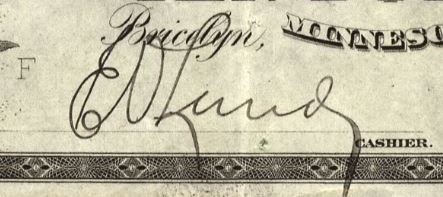 Bricelyn, MINNESO
F
E D Lundy
CASHIER.